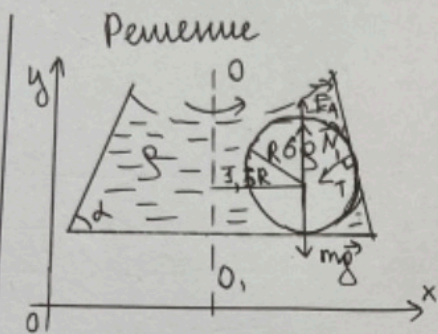 Решение
y
O
F_A
ρ
R
6ρ
N
3,5R
T
α
mg
O₁
0
x